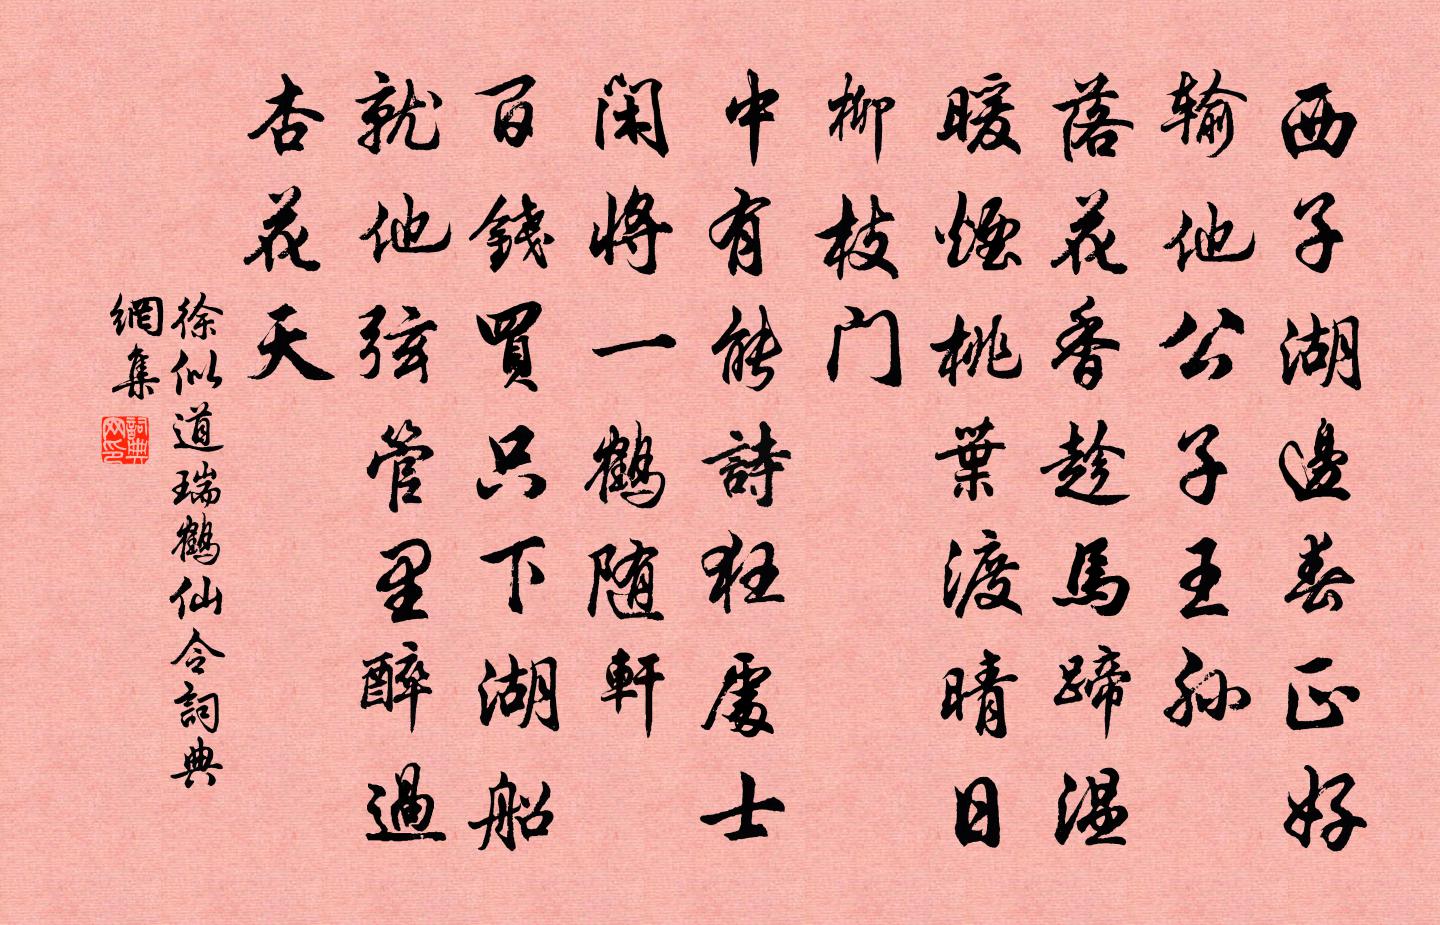 西子湖邊春正好
输他公子王孙
落花香趁馬蹄温
暖煙桃葉渡晴日
柳枝门
中有能詩狂處士
闲将一鹤随軒
百錢買只下湖船
就他弦管里醉過
杏花天
徐似道瑞鹤仙令詞典
網集
詞典
网印